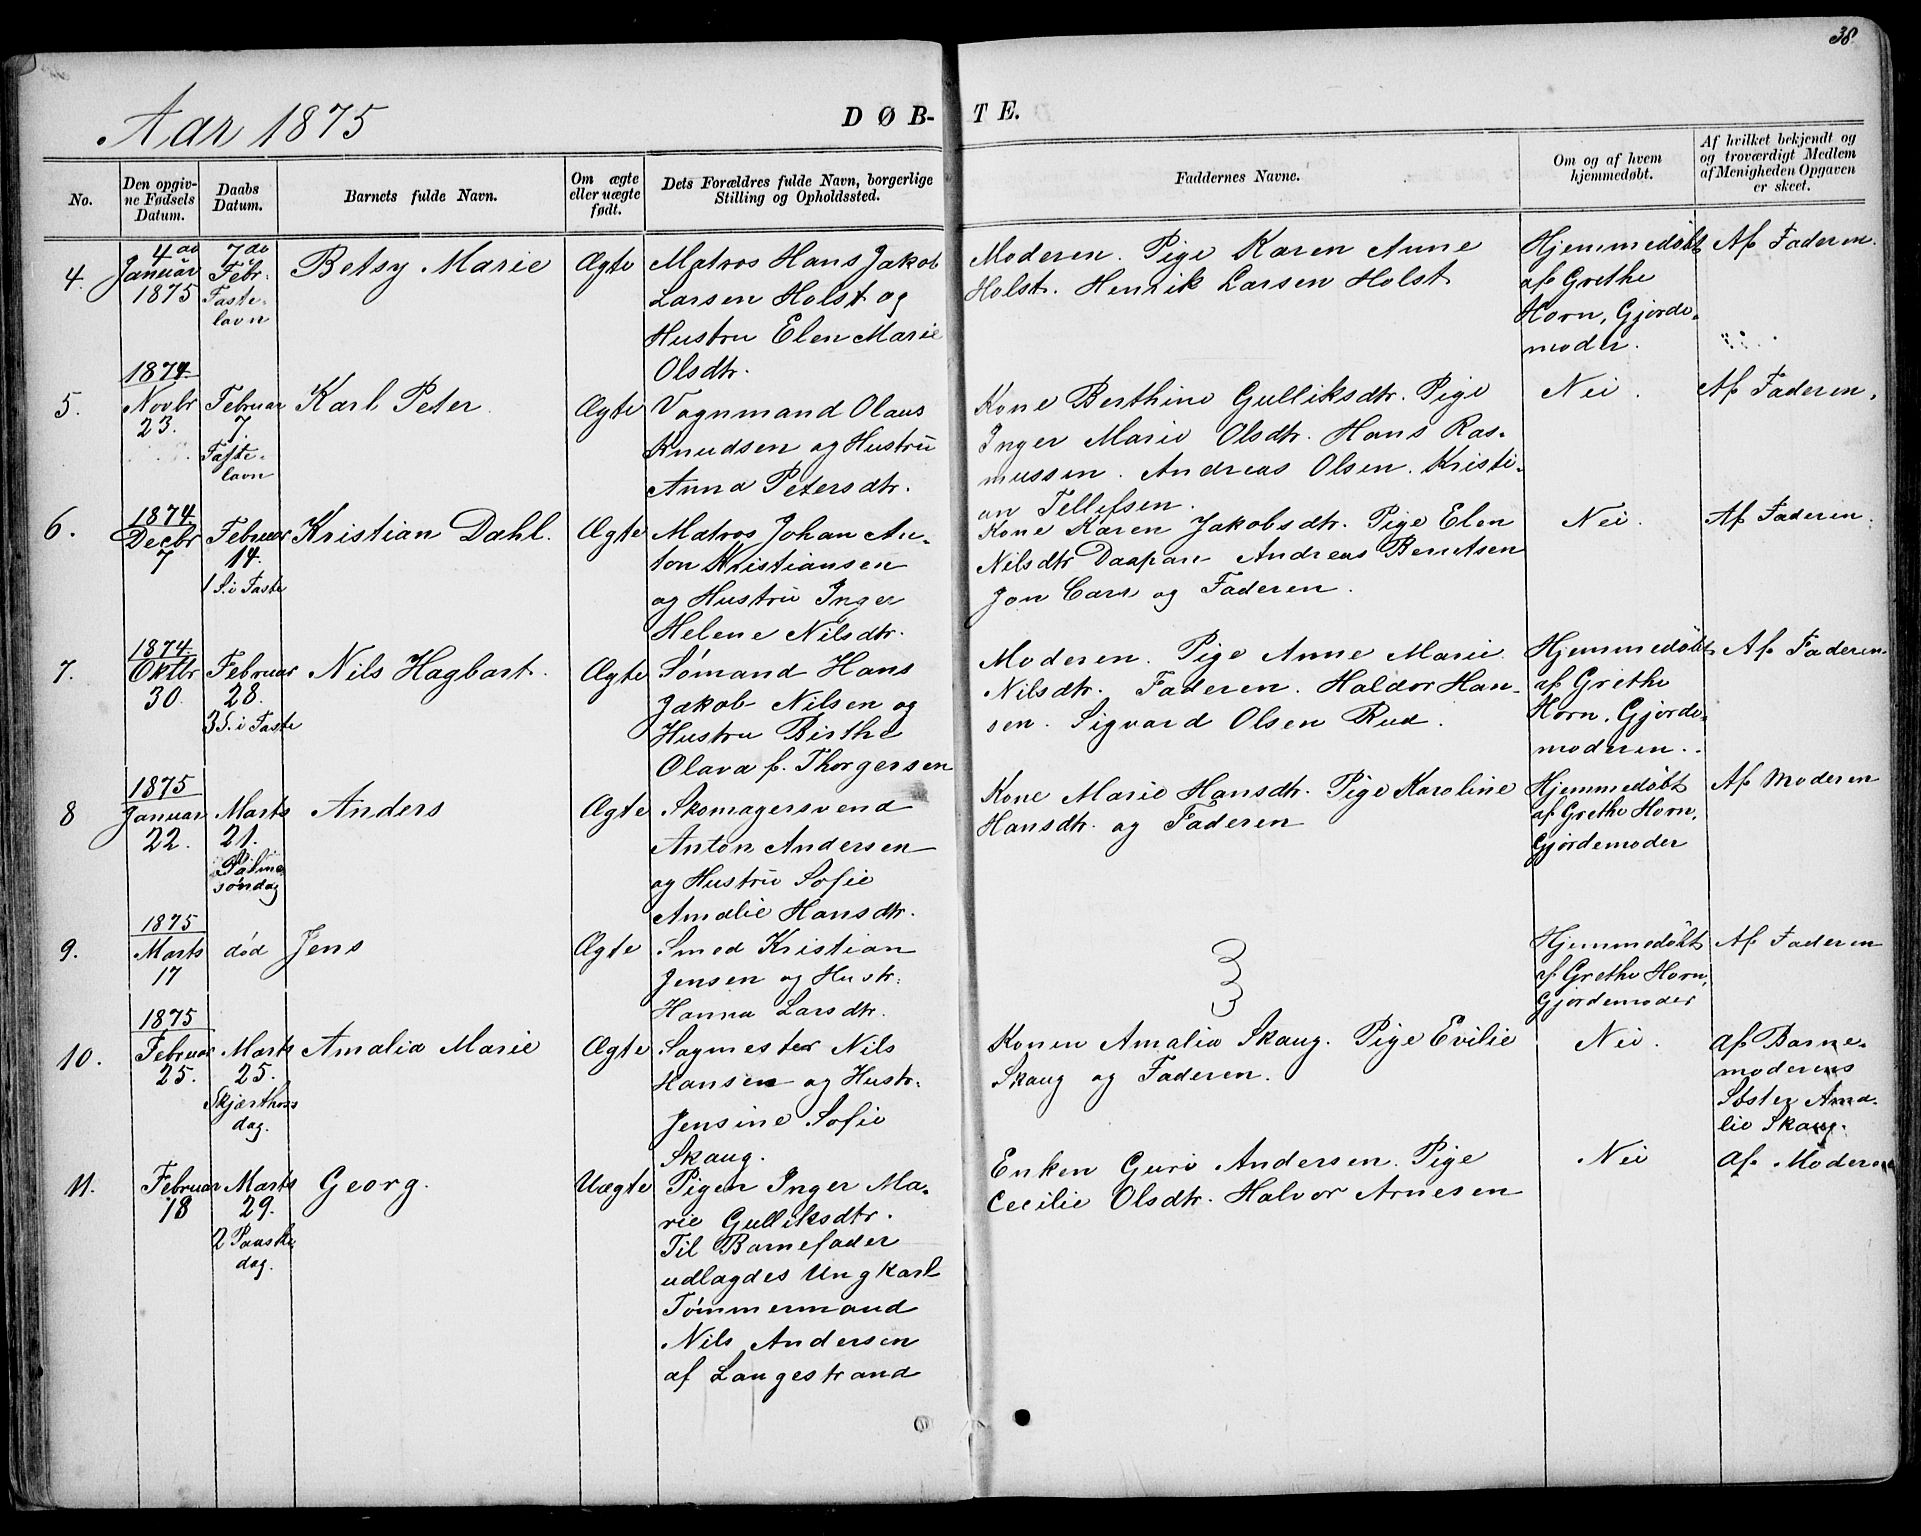 38
Aar 1875
DØB-TE.
No.
Den opgiv-
ne Fødsels
Datum.
Daabs
Datum.
Barnets fulde Navn.
Om ægte
eller uægte
født.
Dets Forældres fulde Navn, borgerlige
Stilling og Opholdssted.
Faddernes Navne.
Om og af hvem
hjemmedøbt.
Af hvilket bekjendt og
og troværdigt Medlem
af Menigheden Opgaven
er skeet.
4.
4de
Januar
1875
7de
Febr.
Faste-
lavn
Betsy Marie
Ægte
Matros Hans Jakob
Larsen Holst og
Hustru Elen Marie
Olsdtr.
Moderen. Pige Karen Anne
Holst. Henrik Larsen Holst
Hjemmedøbt
af Grethe
Horn, Gjorde-
moder.
Af Faderen.
5.
1874
Novbr
23.
Februar
7.
Faste-
lavn
Karl Peter
Ægte
Vognmand Olaus
Knudsen og Hustru
Anna Petersdtr.
Kone Berthine Gulliksdtr. Pige
Inger Marie Olsdtr. Hans Ras-
mussen. Andreas Olsen. Kristi-
an Tellefsen.
Nei.
Af Faderen.
6.
1874
Decbr
7
Februar
14.
1 S. i Faste
Kristian Dahl.
Ægte
Matros Johan An-
ton Kristiansen
og Hustru Inger
Helene Nilsdtr.
Kone Karen Jakobsdtr. Pige Elen
Nilsdtr Daapan Andreas Berntsen
Jon Carr og Faderen.
Nei.
Af Faderen.
7.
1874
Oktbr
30.
Februar
28.
3 S. i Faste
Nils Hagbart.
Ægte
Sømand Hans
Jakob Nilsen og
Hustru Birthe
Olava f. Thorgersen
Moderen. Pige Anne Marie
Nilsdtr. Faderen. Haldor Han-
sen. Sigvard Olsen Rud.
Hjemmedøbt
af Grethe
Horn, Gjorde-
moderen.
Af Faderen.
8
1875
Januar
22.
Marts
21.
Palme
søndag
Anders
Ægte
Skomagersvend
Anton Andersen
og Hustru Sofie
Amalie Hansdtr.
Kone Marie Hansdtr. Pige Karoline
Hansdtr. og Faderen
Hjemmedøbt
af Grethe Horn,
Gjordemoder
Af Moderen
9.
1875
Marts
17
død
Jens
Ægte
Smed Kristian
Jensen og Hustr.
Hanna Larsdtr.
Hjemmedøbt
af Grethe Horn,
Gjordemoder
Af Faderen
10.
1875
Februar
25.
Marts
25.
Skjærthors
dag.
Amalia Marie
Ægte
Sagmester Nils
Hansen og Hustr.
Jensine Sofie
Skaug.
Konen Amalia Skaug. Pige Evilie
Skaug og Faderen.
Nei.
Af Barne-
moderens
Søster Ama-
lie Skaug.
11.
Februar
18
Marts
29.
2 Paaske
dag.
Georg.
Uægte
Pigen Inger Ma-
rie Gulliksdtr.
Til Barnefader
udlagdes Ungkarl
Tømmermand
Nils Andersen
af Langestrand
Enken Guri Andersen. Pige
Cecilie Olsdtr. Halvor Arnesen
Nei
Af Moderen